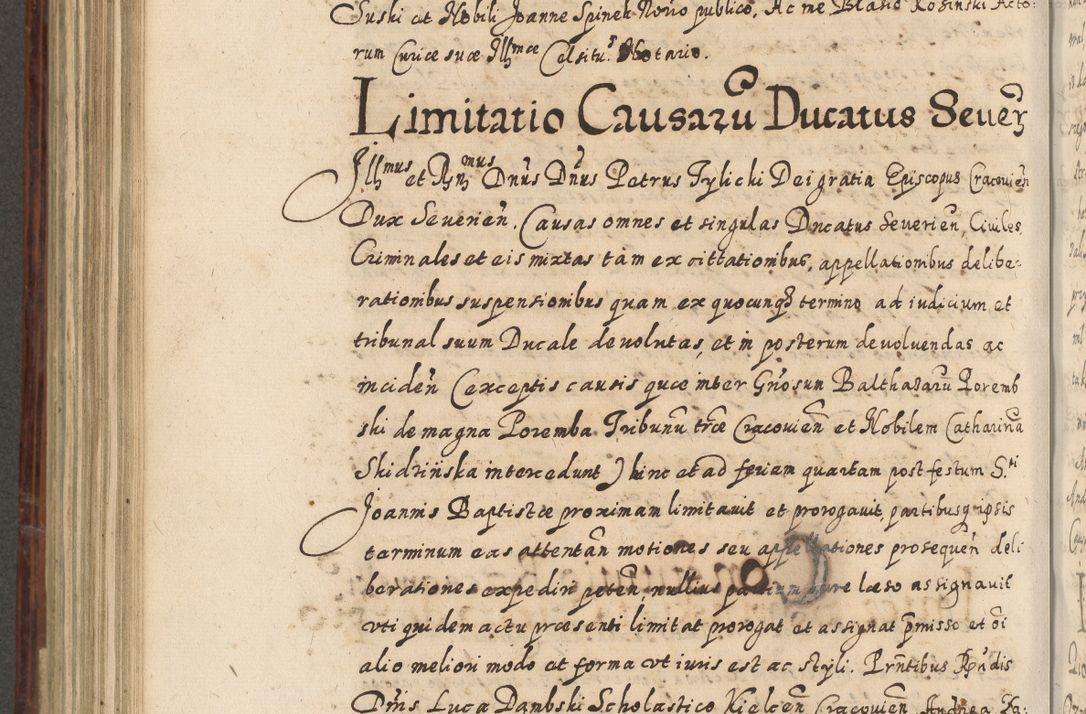 Suski et Nobili Joanne Spinek Novo publico, Ac me Blasio Kosinski Acto:
rum Curiae suae Illmae Celsitus Notario.
Limitatio Causarū Ducatus Seuer
Illmus et Rmus Dnūs Dnūs Petrus Tylicki Dei gratia Episcopus Cracouień
Dux Severień. Causas omnes et singulas Ducatus Severień, Civiles,
Criminales et eis mixtas tàm ex cittationibus, appellationibus delibe:
rationibus suspensionibus quam ex quocunq3 termino ad iudicium et
tribunal suum Ducale devolutas, et in posterum devoluendas ac
inciden̄ (exceptis causis quae inter Gnōsum Balthasarū Poremb
ski de magna Poremba Tribunū trče Cracovień et Nobilem Catharina
Skidzińska intercedunt) hinc et ad feriam quartam post festum S.ti
Joannis Baptistae proximam limitavit et prorogavit, partibusq ipsis
terminum eas attentan̄ motiones seu appellationes prosequen̄ deli
berationes expediri peten̄, nullius partium iure laeso assignavit
vti quidem actu praesenti limitat prorogat et assignat p̄misso et ōi
alio meliori modo et forma vt iuris est ac styli. Prn̄tibus Rn̄dis
Dn̄is Luca Dambski Scholastico Kielcen̄ Cracovień Andrea Za: